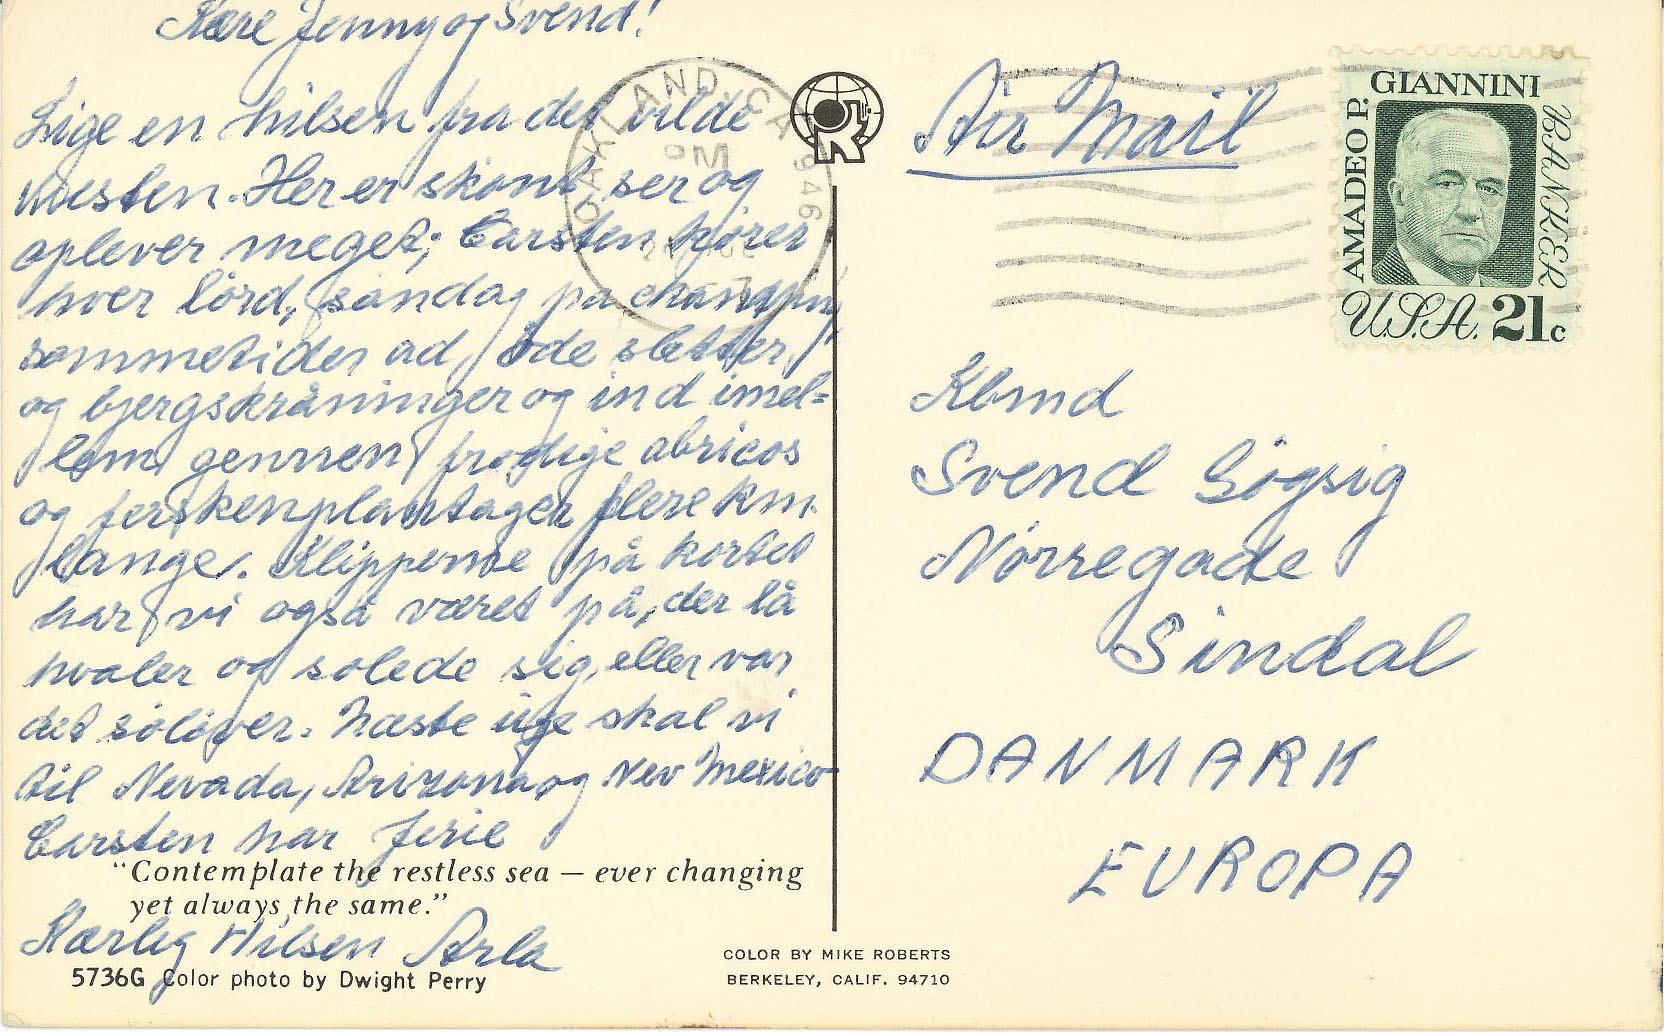 Kære Jenny og Svend!
Lige en hilsen fra det vilde
westen. Her er skønt ser og
oplever meget; Carsten kører
hver lörd, søndag på
sommetider ad, øde sletter,
og bjergskråninger og ind imel=
lem gennem frodige abricos
og ferskenplantager flere km.
lange. Klipperne på kortet
har vi også været på, der lå
hvaler og solede sig, eller var
det søløver. Næste uge skal vi
til Nevada, Arizona og Nev Mexico
Carsten har ferie
"Contemplate the restless sea — ever changing
yet always the same."
Kærlig Hilsen Arla
5736G Color photo by Dwight Perry
COLOR BY MIKE ROBERTS
BERKELEY, CALIF. 94710
OAKLAND, CA 946
PM
Air Mail
AMADEO P. GIANNINI
BANKER
U.S.A. 21c
Kbmd
Svend Søgsig
Nørregade
Sindal
DANMARK
EUROPA